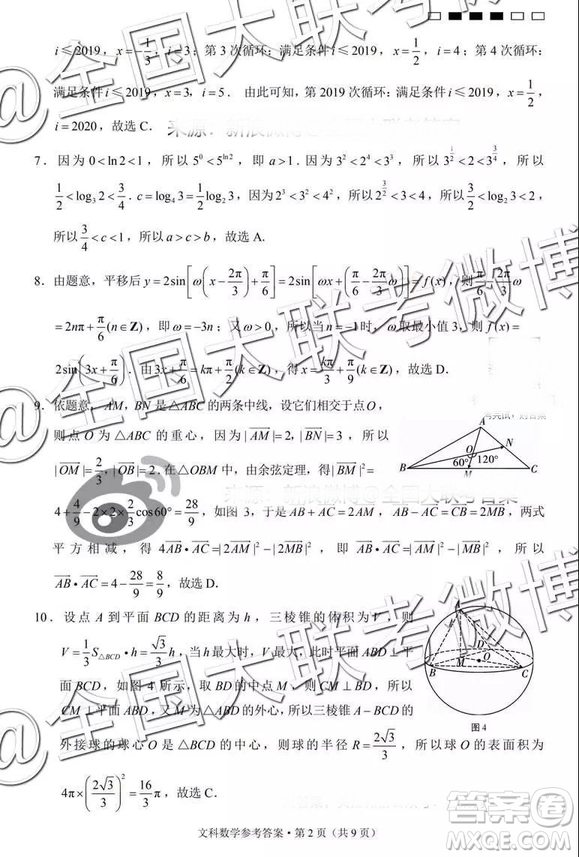 i≤2019，x=-1/3，i=3；第3次循环：满足条件i≤2019，x=1/2，i=4；第4次循环：
满足条件i≤2019，x=3，i=5． 由此可知，第2019次循环：满足条件i≤2019，x=1/2，
i=2020，故选C．
7．因为0<ln2<1，所以5^0<5^{ln2}，即a>1．3^2<2^4<3^3，所以3^{1/2}<2<3^{3/4}，所以
1/2<log_3 2<3/4．c=log_4 3=1/2 log_2 3，因为2^3<3^2<4^2，所以2^{3/2}<3<4，所以3/2<log_2 3<2，
所以3/4<c<1，所以a>c>b，故选A．
8．由题意，平移后y=2sin[ω(x-2π/3)+π/6]=2sin[ωx+(π/6-2π/3ω)]=f(x)，则π/6-2π/3ω
=2nπ+π/6(n∈Z)，即ω=-3n；又ω>0，所以当n=-1时，ω取最小值3，则f(x)=
2sin(3x+π/6)．由3x+π/6=kπ+π/2(k∈Z)，得x=kπ/3+π/9(k∈Z)，故选D．
9．依题意，AM，BN是△ABC的两条中线，设它们相交于点O，
则点O为△ABC的重心，因为|AM|=2，|BN|=3，所以
|OM|=2/3，|OB|=2．在△OBM中，由余弦定理，得|BM|²=
4+4/9-2×2×2/3cos60°=28/9，如图3，于是AB+AC=2AM，AB-AC=CB=2MB，两式
平方相减，得4AB·AC=|2AM|²-|2MB|²，即AB·AC=|AM|²-|MB|²，所以
AB·AC=4-28/9=8/9，故选D．
A
N
60°
120°
B
M
C
10．设点A到平面BCD的距离为h，三棱锥的体积为V，则
V=1/3 S_{△BCD}·h=√3/3 h，当h最大时，V最大，此时平面ABD⊥平
面BCD，如图4所示，取BD的中点M，则CM⊥BD，所以
CM⊥平面ABD，又M为△ABD的外心，所以三棱锥A-BCD的
外接球的球心O是△BCD的中心，则球的半径R=2√3/3，所以球O的表面积为
4π×(2√3/3)²=16/3π，故选C．
A
D
B
M
O
C
图4
文科数学参考答案·第2页（共9页）
@全国大联考微博
@全国大联考微博
答案圈
MXQE.COM